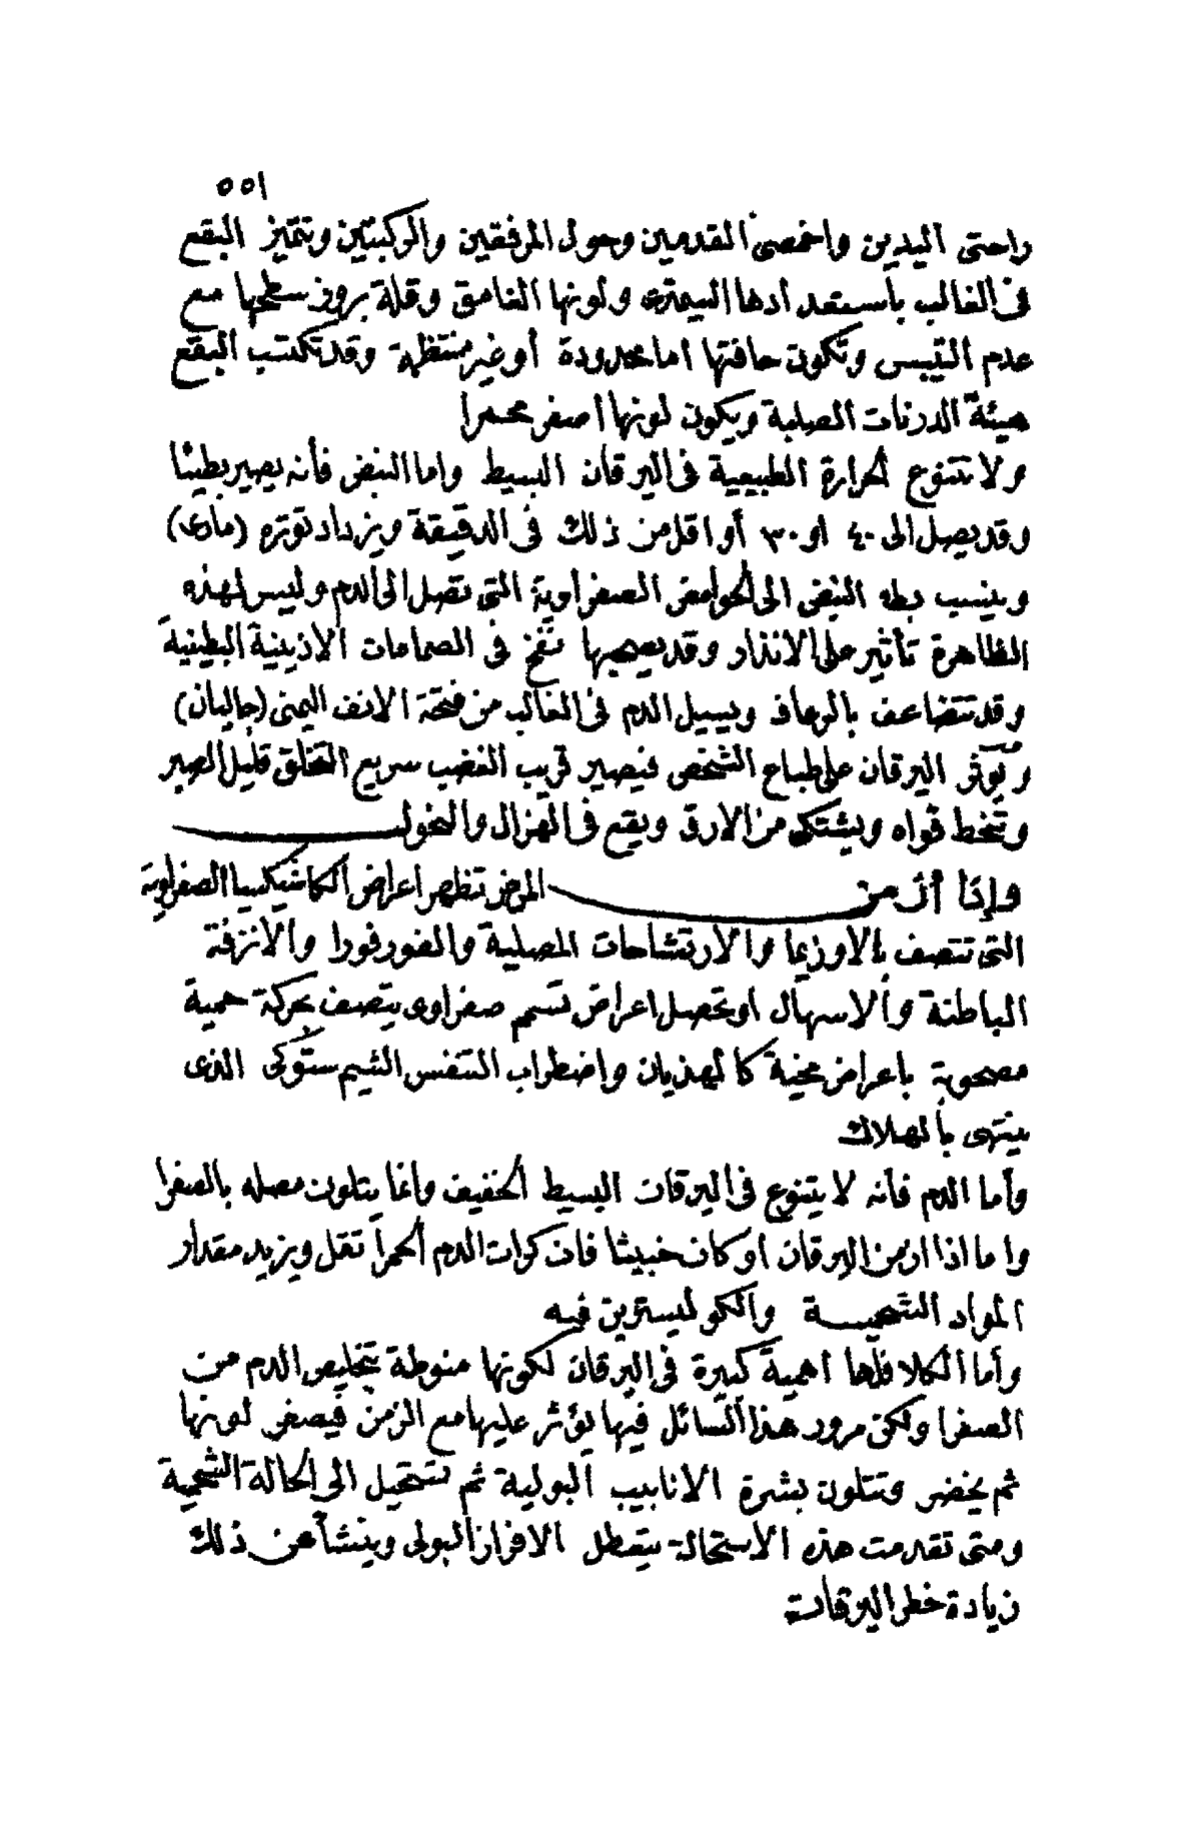 ٥٥١
راحتى اليدين واخمصى القدمين وحول المرفقين والركبتين وتتميز البقع
فى الغالب باستعدادها السيمترى ولونها الغامق وقلة بروز سطحها مع
عدم التيبس وتكون حافتها اما محدودة أو غير منتظمة وقد تكتسب البقع
هيئة الدرنات الصلبة ويكون لونها اصفر محمرا
ولا تتنوع الحرارة الطبيعية فى اليرقان البسيط واما النبض فأنه يصير بطيئا
وقد يصل الى ٤٠ او ٣٠ أو اقل من ذلك فى الدقيقة ويزداد توتره (مارى)
وينسب بطء النبض الى الحوامض الصفراوية التى تصل الى الدم وليس لهذه
الظاهرة تأثير على الانذار وقد يصحبها نفخ فى الصمامات الاذينية البطينية
وقد تتضاعف بالرعاف ويسيل الدم فى الغالب من فتحة الانف اليمنى (جاليان)
ويؤثر اليرقان على طباع الشخص فيصير قريب الغضب سريع القلق قليل الصبر
وتنحط قواه ويشتكى من الارق ويقع فى الهزال والنحول
وإذا أزمن المرض تظهر اعراض الكاشيكسيا الصفراوية
التى تتصف بالاوزيما والارتشاحات المصلية والفورفورا والانزفة
الباطنة والاسهال او تحصل اعراض تسمم صفراوى يتصف بحركة حمية
مصحوبة باعراض مخية كالهذيان واضطراب التنفس الشيم ستوكى الذى
ينتهى بالهلاك
وأما الدم فأنه لا يتنوع فى اليرقان البسيط الخفيف وانما يتلون مصله بالصفرا
واما اذا ازمن اليرقان او كان خبيثا فان كرات الدم الحمرا تقل ويزيد مقدار
المواد الشحمية والكوليسترين فيه
وأما الكلا فلها اهمية كبيرة فى اليرقان لكونها منوطة بتخليص الدم من
الصفرا ولكن مرور هذا السائل فيها يؤثر عليها مع الزمن فيصفر لونها
ثم يخضر وتتلون بشرة الانابيب البولية ثم تستحيل الى الحالة الشحمية
ومتى تقدمت هذه الاستحالة يتعطل الافراز البولى وينشأ عن ذلك
زيادة خطر اليرقان